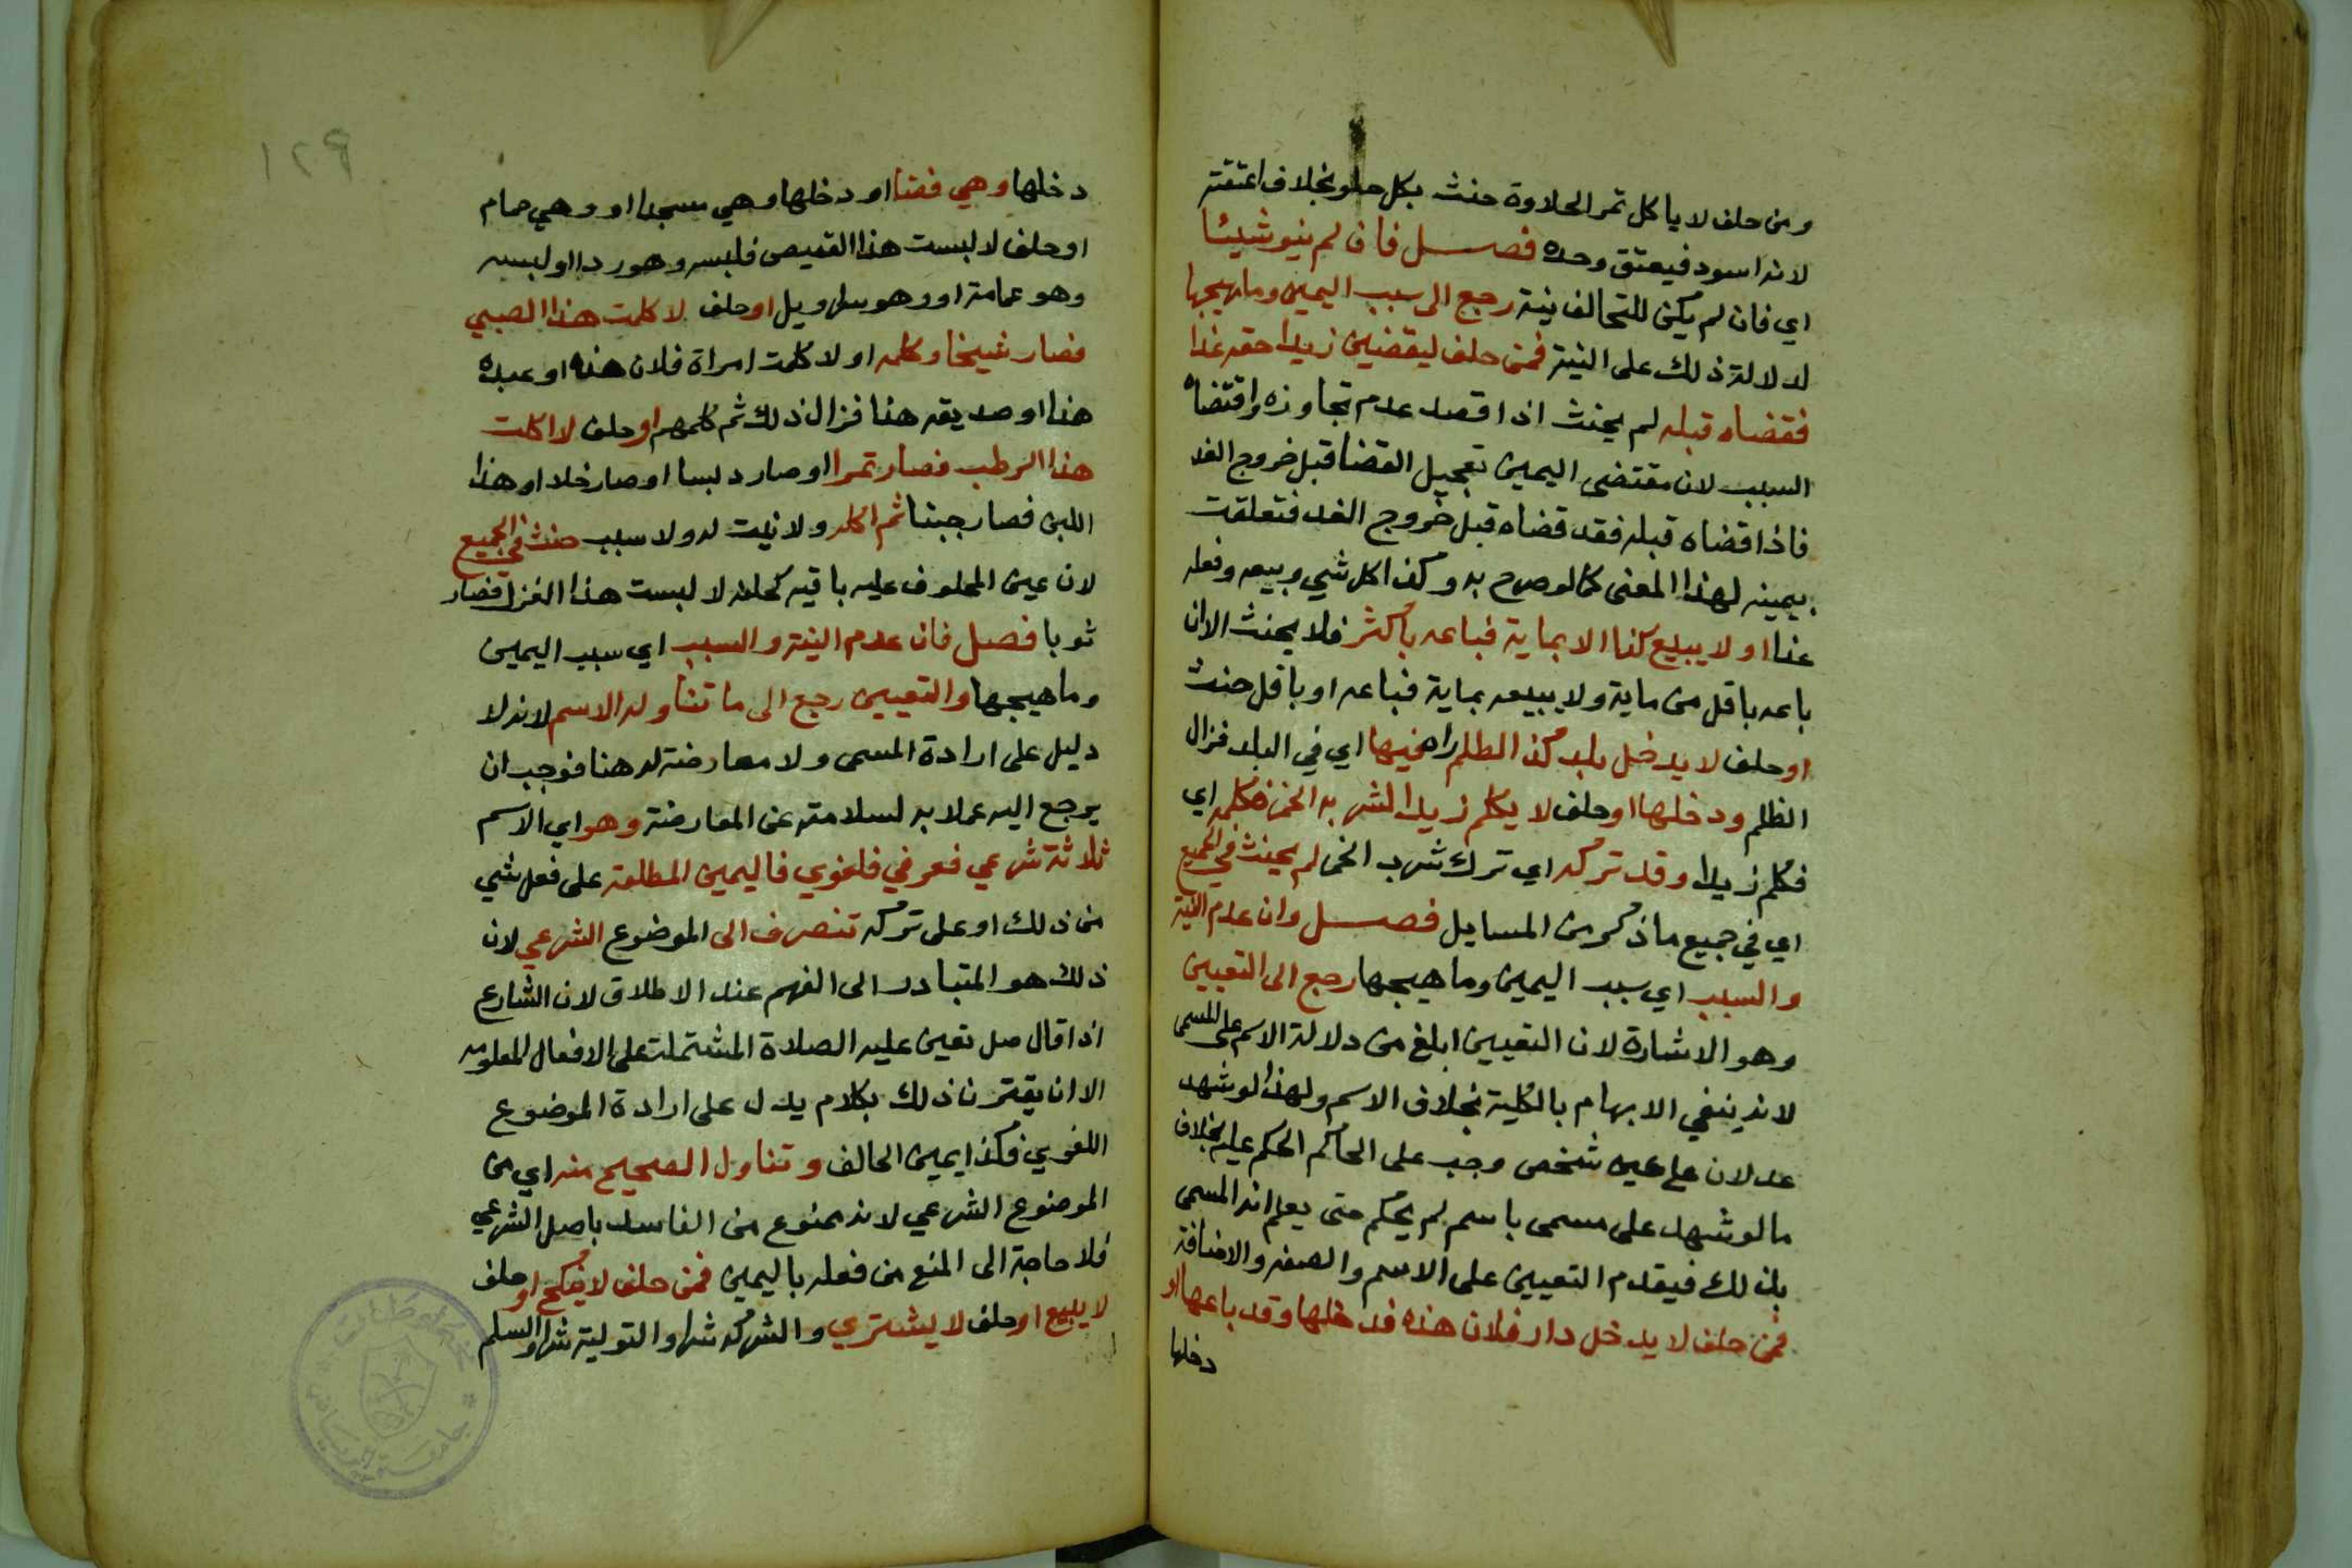 ومن حلف لا ياكل تمر الحلاوة حنث بكل حلو بخلاف اعتقته
لانه اسود فيعتق وحده فصل فان لم ينو شيئا
اي فان لم يكن للحالف نية رجع الى سبب اليمين وما يهيجها
لدلالة ذلك على النية فمن حلف ليقضين زيدا حقه غدا
فقضاه قبله لم يحنث اذا قصد عدم تجاوزه واقتضاه
السبب لان مقتضى اليمين تعجيل القضا قبل خروج الغد
فاذا قضاه قبله فقد قضاه قبل خروج الغد فتعلقت
يمينه لهذا المعنى كما لو صرح به وكذا اكل شي وبيعه وفعله
غدا او لا يبيع كذا الا بماية فباعه باكثر فلا يحنث الا ان
باعه باقل من ماية ولا يبيعه بماية فباعه او باقل حنث
او حلف لا يدخل بلد كذا لظلم راه فيها اي في البلد فزال
الظلم ودخلها او حلف لا يكلم زيدا لشربه الخمر فكلمه اي
فكلم زيدا وقد تركه اي ترك شرب الخمر لم يحنث في الجميع
اي في جميع ما ذكر من المسايل فصل وان عدم النية
والسبب اي سبب اليمين وما هيجها رجع الى التعيين
وهو الاشارة لان التعيين ابلغ من دلالة الاسم على المسمى
لانه ينفي الابهام بالكلية بخلاف الاسم ولهذا لو شهد
عدلان على عين شخص وجب على الحاكم الحكم عليه بخلاف
ما لو شهد على مسمى باسم لم يحكم حتى يعلم انه المسمى
بذلك فيقدم التعيين على الاسم والصفة والاضافة
فمن حلف لا يدخل دار فلان هذه فدخلها وقد باعها او
دخلها
١٢٩
دخلها وهي فضا او دخلها وهي مسجدا او وهي حمام
او حلف لا لبست هذا القميص فلبسه وهو ردا او لبسه
وهو عمامة او وهو سراويل او حلف لا كلمت هذا الصبي
فصار شيخا وكلمه او لا كلمت امراة فلان هذه او عبده
هذا او صديقه هذا فزال ذلك ثم كلمهم او حلف لا اكلت
هذا الرطب فصار تمرا او صار دبسا او صار خلا او هذا
اللبن فصار جبنا ثم اكله ولا نيت له ولا سبب حنث في الجميع
لان عين المحلوف عليه باقيه كحلفه لا لبست هذا الغزل فصار
ثوبا فصل فان عدم النية والسبب اي سبب اليمين
وما هيجها والتعيين رجع الى ما تناوله الاسم لانه لا
دليل على ارادة المسمى ولا معارضة له هنا فوجب ان
يرجع اليه عملا به لسلامته عن المعارضة وهو اي الاسم
ثلاثة شرعي فعرفي فلغوي فاليمين المطلقة على فعل شي
من ذلك او على تركه تنصرف الى الموضوع الشرعي لان
ذلك هو المتبادر الى الفهم عند الاطلاق لان الشارع
اذا قال صل تعين عليه الصلاة المشتملة على الافعال المعلومه
الا ان يقترن ذلك بكلام يدل على ارادة الموضوع
اللغوي فكذا يمين الحالف وتناول الصحيح منه اي من
الموضوع الشرعي لانه ممنوع من الفاسد باصل الشرعي
فلا حاجة الى المنع من فعله باليمين فمن حلف لا ينكح او حلف
لا يبيع او حلف لا يشتري والشركه شرا والتولية شرا والسلم
مخطوطات
جامعة الرياض